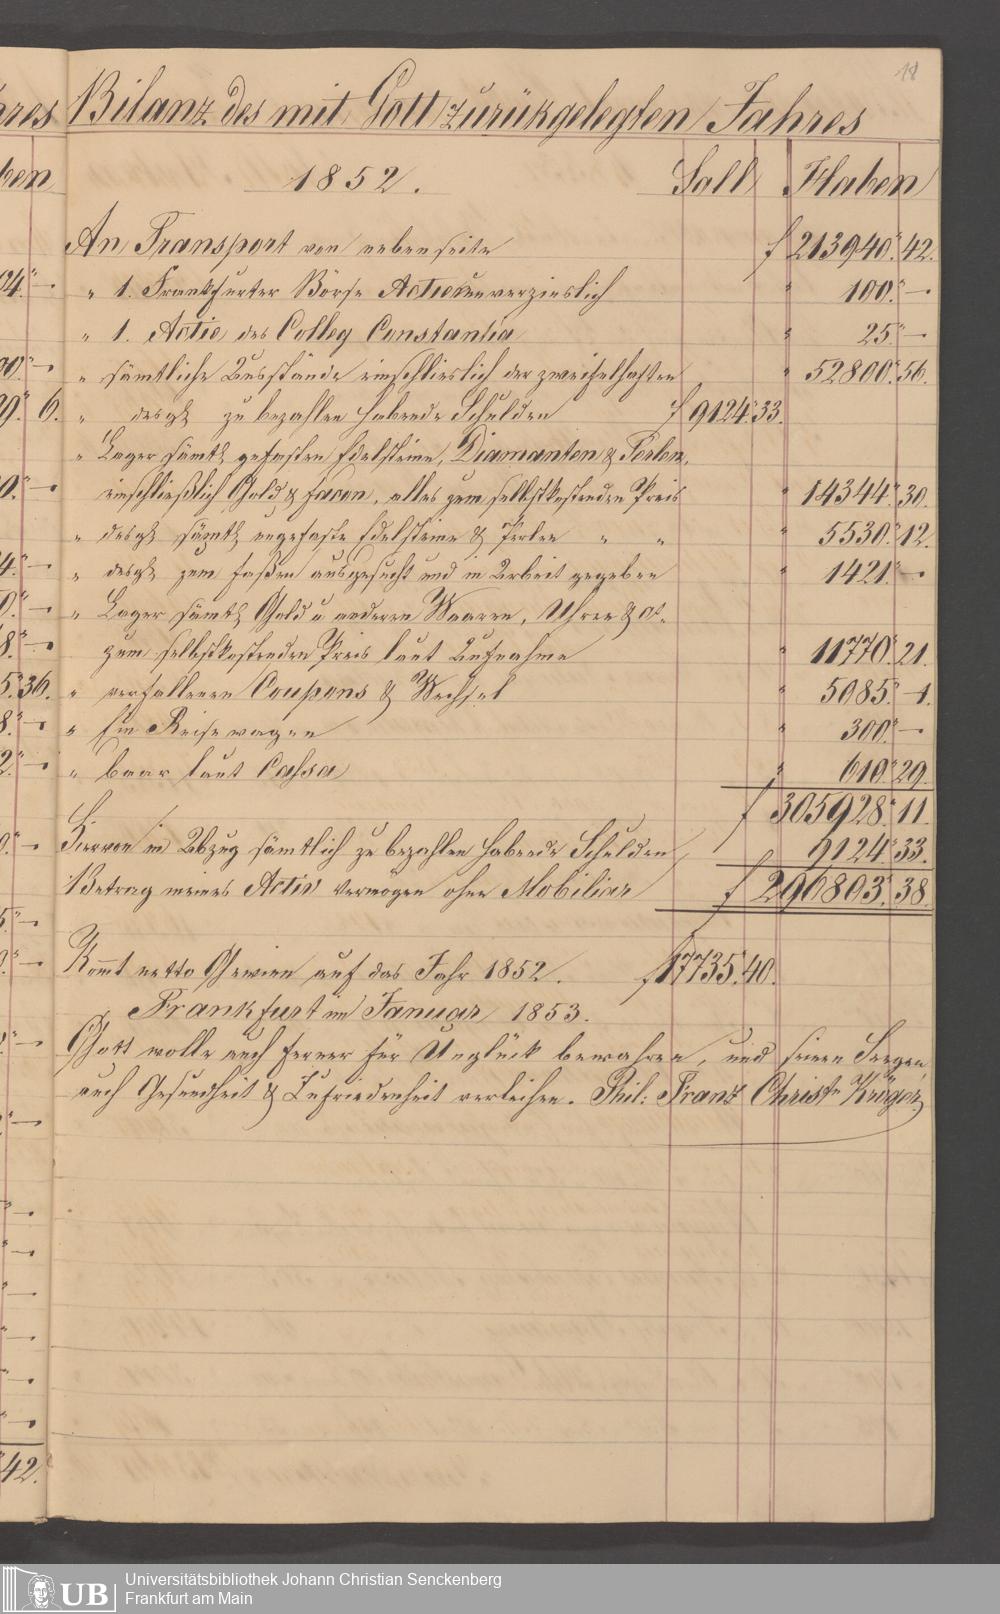 18
Bilanz des mit Gott zurükgelegten Jahres
1852. Soll Haben
An Transport von nebenseite f 213940. 42.
" 1. Frankfurter Börse Actie unverzinslich " 100. —
" 1. Actie des Colleg Constantia " 25. —
" sämtliche Ausstände einschlieslich der zweifelhaften " 52800. 56.
" desgl. zu bezahlen habende Schulden f 9124. 33.
" Lager sämtl. gefasten Edelsteine, Diamanten & Perlen,
einschließlich Gold & facon, alles zum selbstkostenden Preis " 14344. 30.
" desgl. sämtl. ungefaste Edelsteine & Perlen " " " 5530. 12.
" desgl. zum faßen ausgesucht und in Arbeit gegeben " 1421. —
" Lager sämtl. Gold u. anderen Waaren, Uhren & ct.
zum selbstkostenden Preis laut Aufnahme " 11770. 21.
" verfallenen Coupons & Wechsel " 5085. 1.
" Ein Reisewagen " 300. —
" baar laut Cassa " 610. 29.
f 305928. 11.
Hiervon in Abzug sämtlich zu bezahlen habende Schulden 9124. 33.
Betrag meines Activ Vermögen ohne Mobiliar f 296803. 38.
Kommt netto Gewinn auf das Jahr 1852. f 17735. 40.
Frankfurt im Januar 1853.
Gott wolle auch ferner für Unglück bewahren, und seinen Seegen,
auch Gesundheit & Zufriedenheit verleihen. Phil: Franz Christn Kröger
hres
ben
04. —
00. —
09. 6.
0. —
4. —
0. —
8. —
5. 36.
8. —
2. —
0. —
5. —
42.
Universitätsbibliothek Johann Christian Senckenberg
Frankfurt am Main
UB